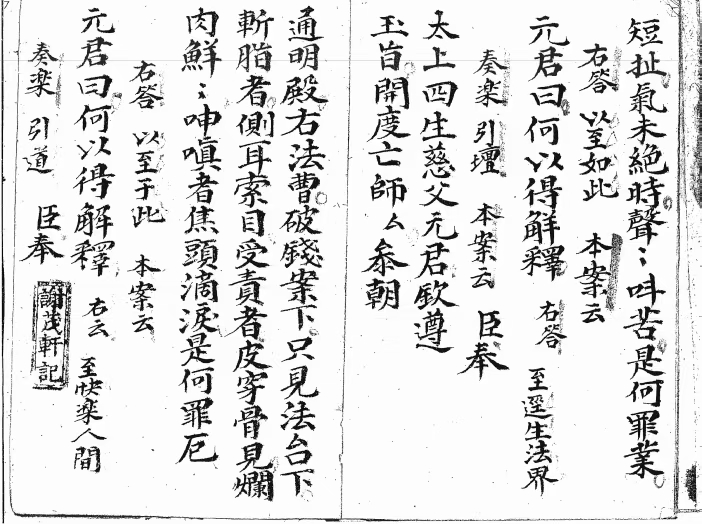 短扯氣未絕時聲〻呌苦是何罪業
右答 以至如此 本案云
元君曰何以得解釋 右答 至逕生法界
奏楽 引壇 本案云 臣奉
太上四生慈父元君欽遵
玉旨開度亡師厶叅朝
通明殿右法曹破錢案下只見法台下
斬脂者側耳索目受責者皮穿骨見爛
肉鮮〻呻嗔者焦頭滴淚是何罪厄
右答 以至于此 本案云
元君曰何以得解釋 右云 至快楽人間
奏楽 引道 臣奉
謝茂軒記